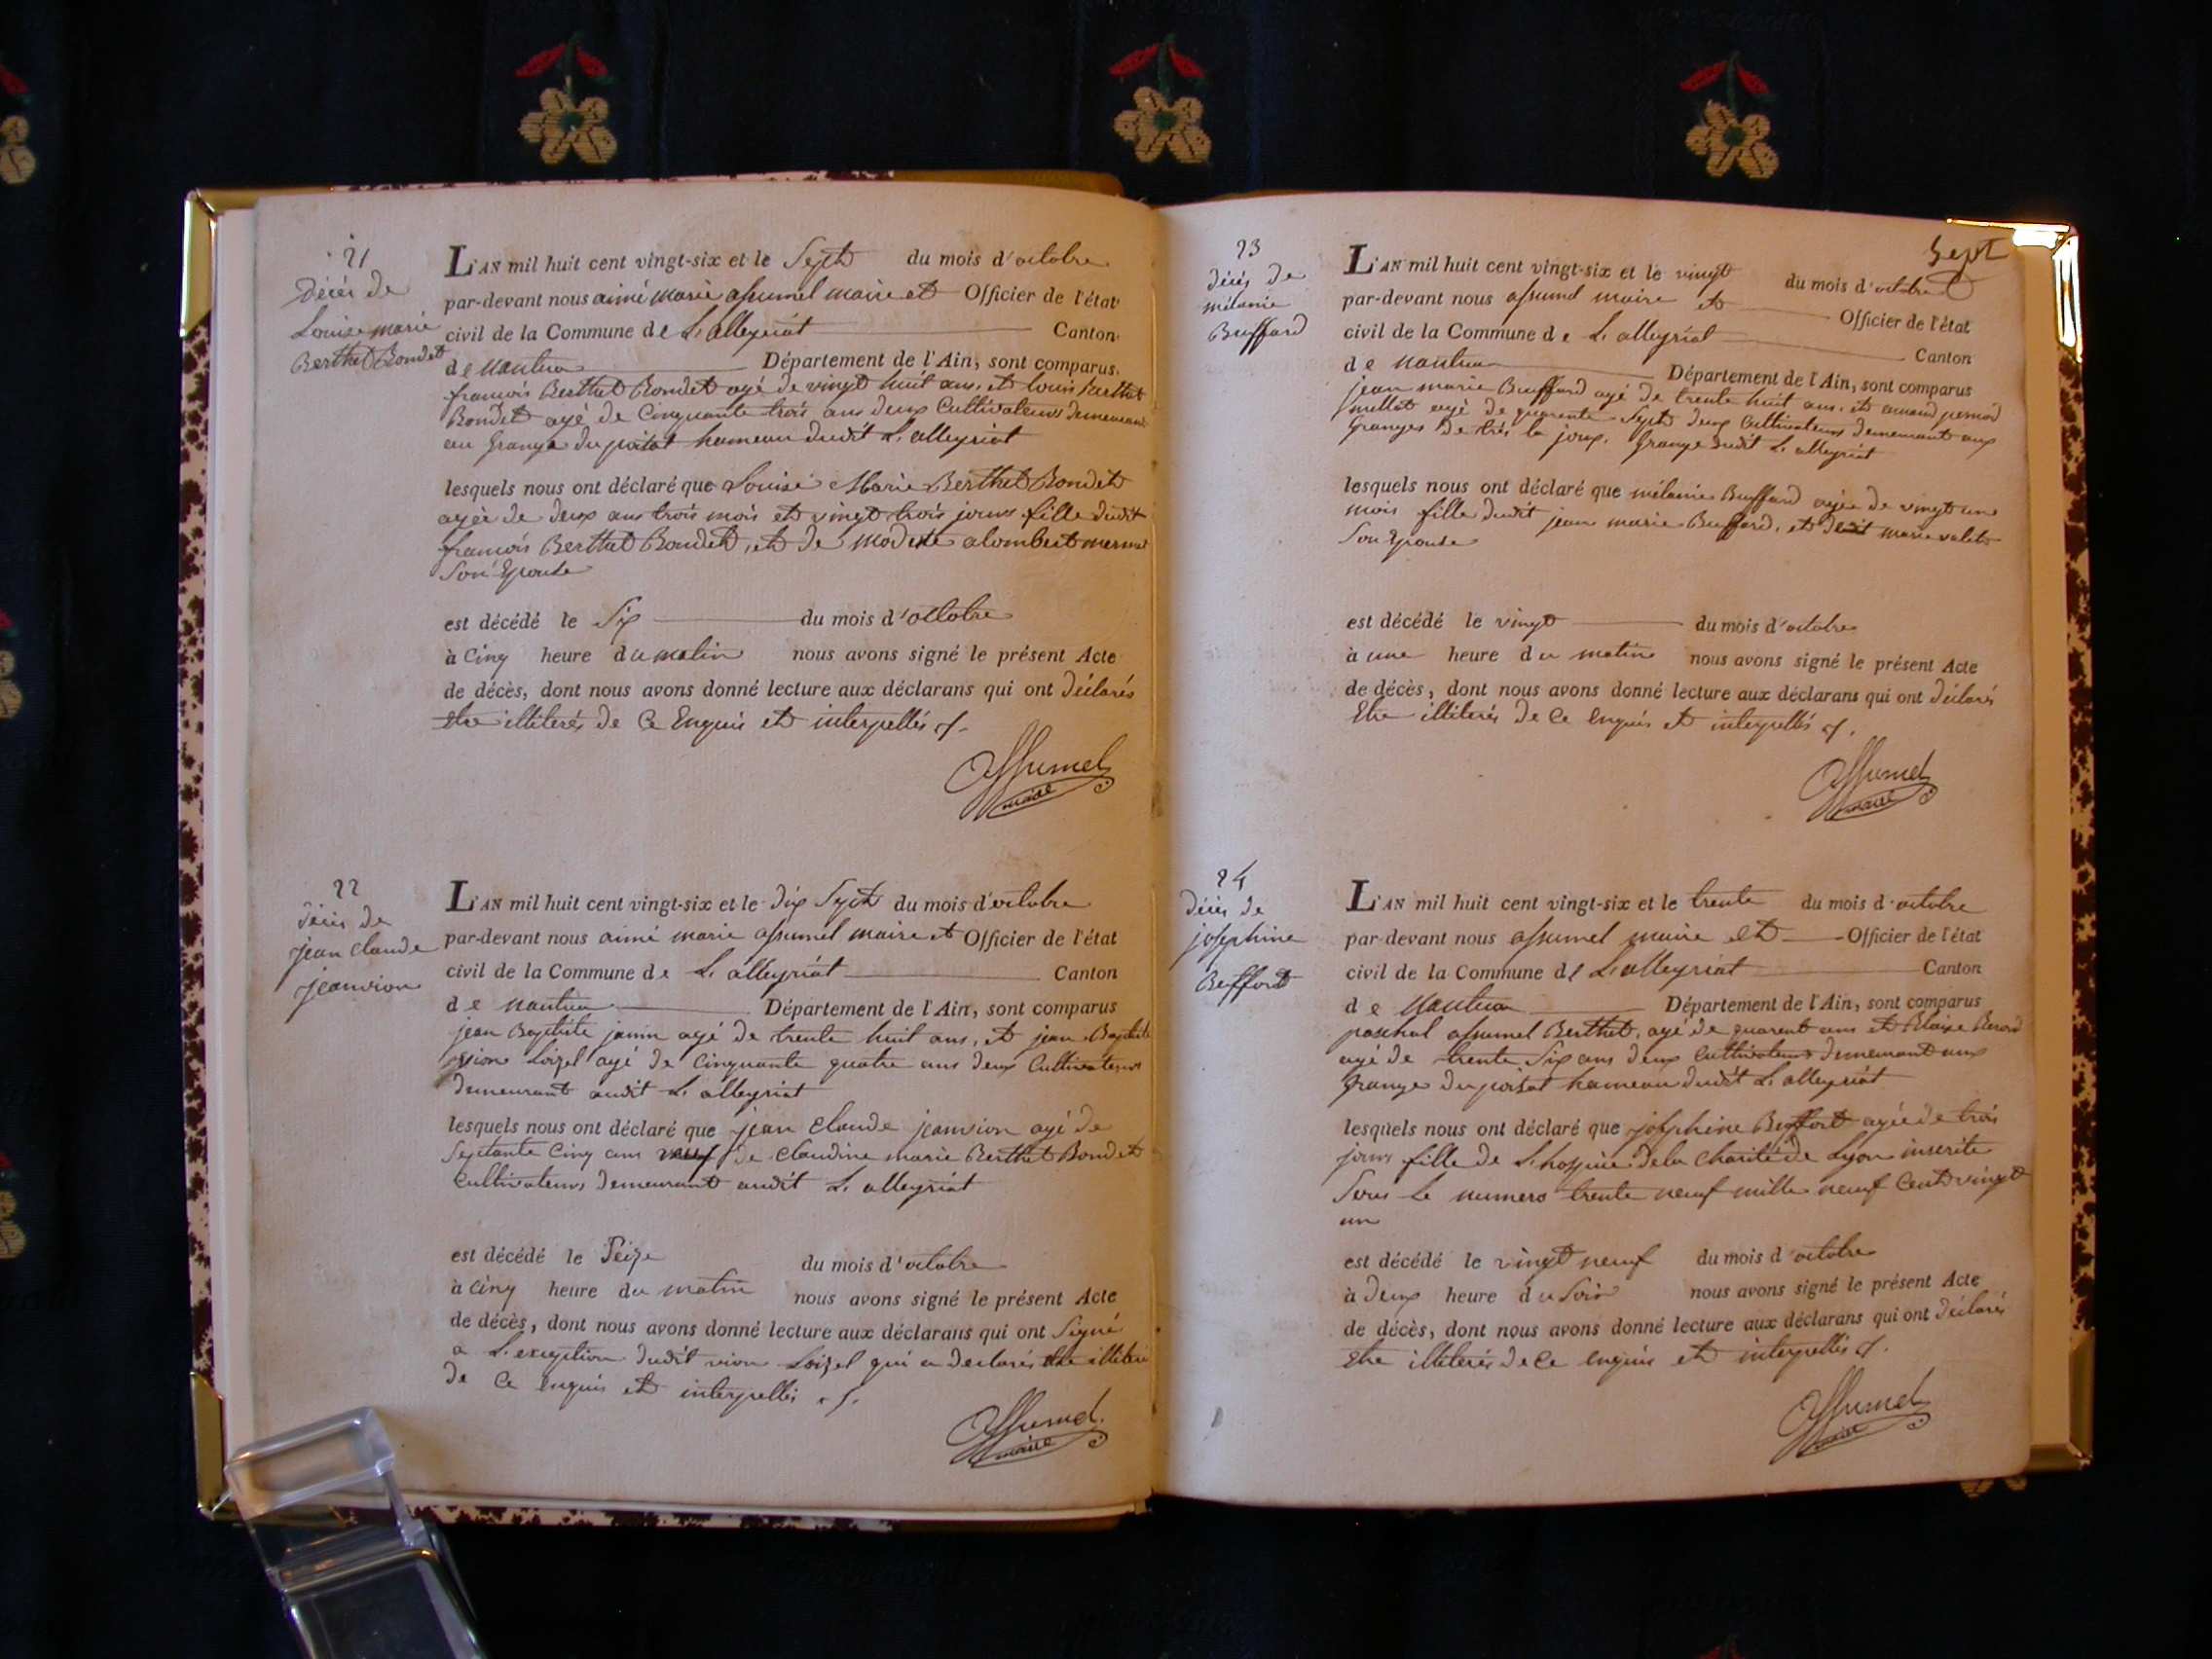 21
Décés de
Louise marie
Berthet Bondet
L'AN mil huit cent vingt-six et le Sept du mois d'octobre
par-devant nous aimé marie assumel maire et Officier de l'état
civil de la Commune de L'alleyriat Canton
de Nantua Département de l'Ain, sont comparus
francois Berthet Bondet agé de vingt huit ans, et louis Berthet
Bondet agé de Cinquante trois ans deux Cultivateurs demeurant
au Grange du poisat hameau dudit L'alleyriat
lesquels nous ont déclaré que Louise Marie Berthet Bondet
agée de deux ans trois mois et vingt trois jours fille dudit
francois Berthet Bondet, et de modeste alombert mermet
Son Epouse
est décédé le Six du mois d'octobre
à Cinq heure du matin nous avons signé le présent Acte
de décès, dont nous avons donné lecture aux déclarans qui ont déclarés
etre illiterés de Ce Enquis et interpellés
Assumel
maire
22
décés de
jean Claude
jeanvion
L'AN mil huit cent vingt-six et le dix Sept du mois d'octobre
par-devant nous aimé marie assumel maire et Officier de l'état
civil de la Commune de L'alleyriat Canton
de Nantua Département de l'Ain, sont comparus
jean Baptiste janin agé de trente huit ans, et jean Baptiste
vion Loizel agé de Cinquante quatre ans deux Cultivateurs
demeurant audit L'alleyriat
lesquels nous ont déclaré que jean Claude jeanvion agé de
Septante Cinq ans veuf de Claudine marie Berthet Bondet
Cultivateurs demeurant audit L'alleyriat
est décédé le Seize du mois d'octobre
à Cinq heure du matin nous avons signé le présent Acte
de décès, dont nous avons donné lecture aux déclarans qui ont Signé
a L'exception dudit vion Loizel qui a declarés etre illiteré
de Ce enquis et interpellés
Assumel
maire
Sept
23
décés de
mélanie
Buffard
L'AN mil huit cent vingt-six et le vingt du mois d'octobre
par-devant nous assumel maire et Officier de l'état
civil de la Commune de L'alleyriat Canton
de Nantua Département de l'Ain, sont comparus
jean marie Buffard agé de trente huit ans, et amand
agé de quarente Sept deux Cultivateurs demeurant aux
Granges de trés la joux, Grange dudit L'alleyriat
lesquels nous ont déclaré que mélanie Buffard agée de vingt une
mois fille dudit jean marie Buffard, et de marie valet
Son Epouse
est décédé le vingt du mois d'octobre
à une heure du matin nous avons signé le présent Acte
de décès, dont nous avons donné lecture aux déclarans qui ont déclarés
Etre illiterés de Ce enquis et interpellés
Assumel
maire
24
décés de
josephine
Buffort
L'AN mil huit cent vingt-six et le trente du mois d'octobre
par-devant nous assumel maire et Officier de l'état
civil de la Commune de L'alleyriat Canton
de Nantua Département de l'Ain, sont comparus
paschal assumel Berthet, agé de quarent ans et Blaise
agé de trente Six ans deux Cultivateurs demeurant aux
Grange du poisat hameau dudit L'alleyriat
lesquels nous ont déclaré que josephine Buffort agée de trois
jours fille de L'hospice de la Charité de Lyon inscrite
Sous Le numero trente neuf mille neuf Cent vingt
un
est décédé le vingt neuf du mois d'octobre
à Deux heure du Soir nous avons signé le présent Acte
de décès, dont nous avons donné lecture aux déclarans qui ont déclarés
etre illiterés de Ce enquis et interpellés
Assumel
maire